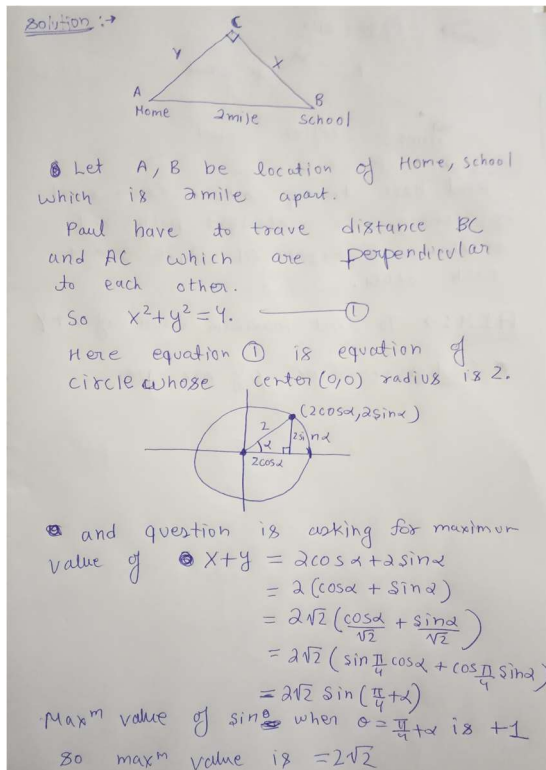 Solution :→
C
Y
X
A
B
Home
2mile
School
Let A, B be location of Home, school
which is 2mile apart.
Paul have to trave distance BC
and AC which are perpendicular
to each other.
So x²+y²=4. ——— ①
Here equation ① is equation of
circle whose center (0,0) radius is 2.
(2cosα, 2sinα)
2
2sinα
α
2cosα
and question is asking for maximum
value of X+y = 2cosα+2sinα
= 2(cosα + sinα)
= 2√2 (cosα/√2 + sinα/√2)
= 2√2 (sin π/4 cosα + cos π/4 sinα)
= 2√2 sin(π/4+α)
Maxᵐ value of sinθ when θ=π/4+α is +1
So maxᵐ value is =2√2